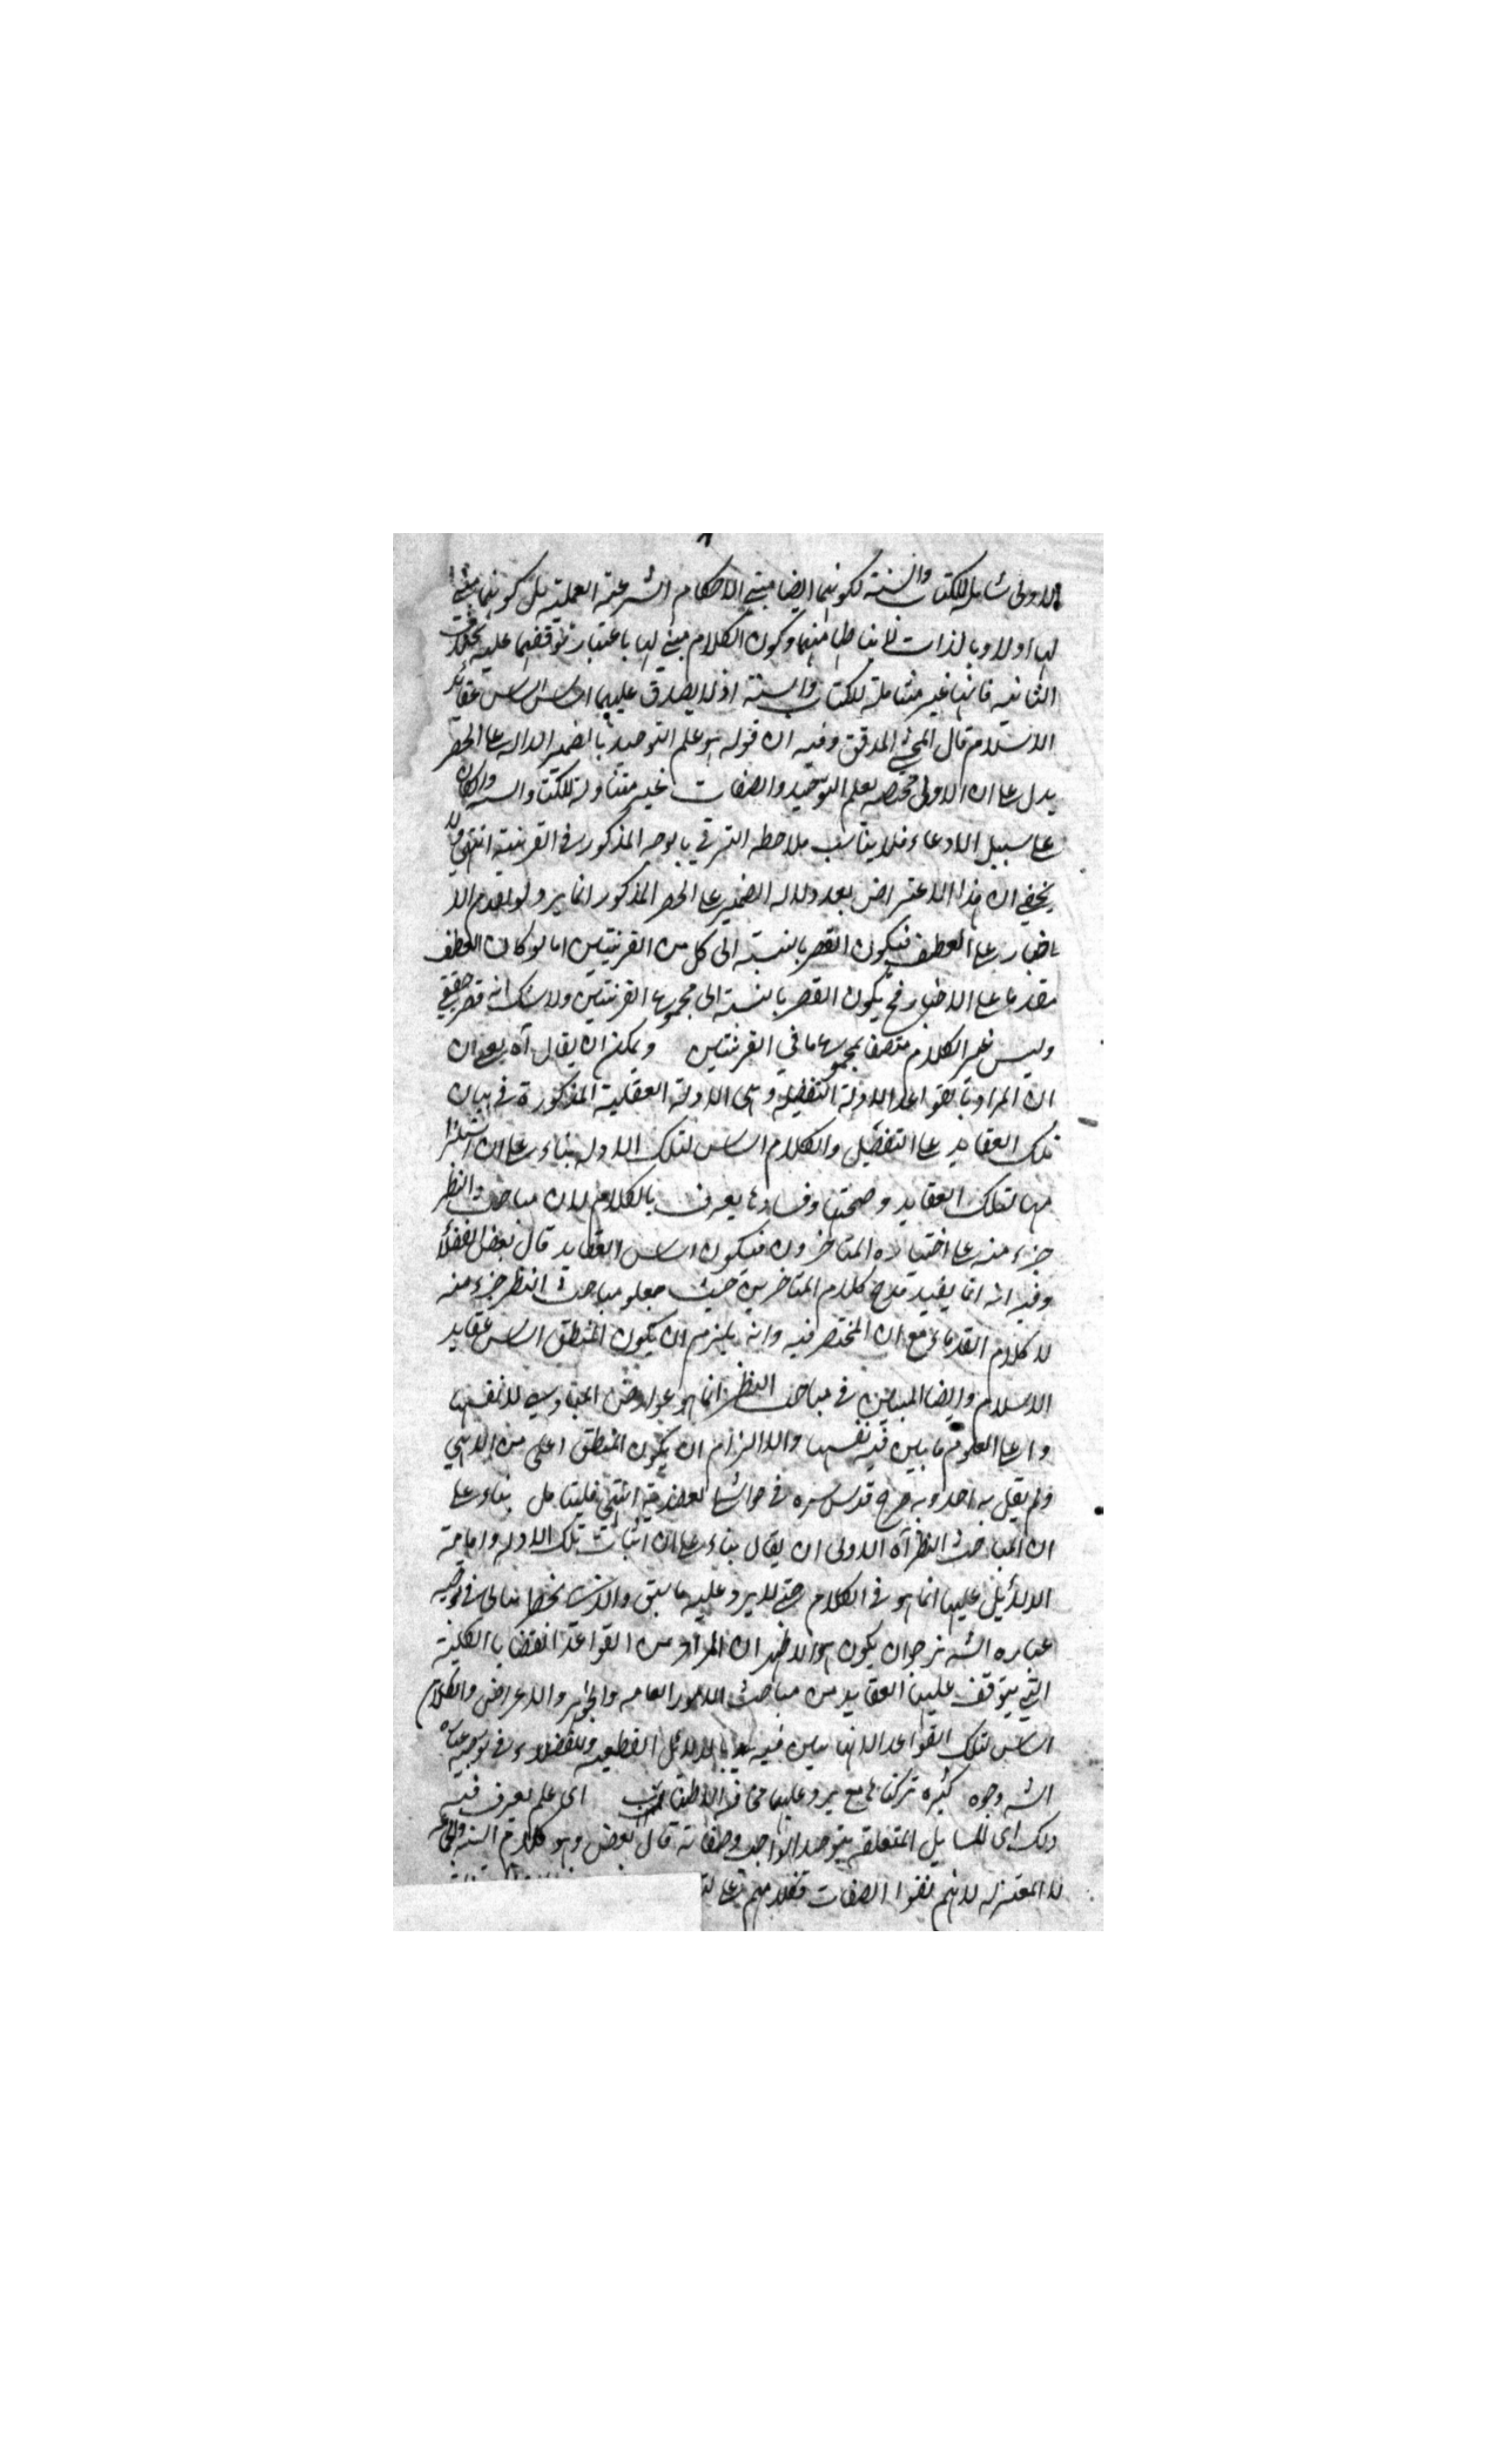 الاولى شاملة للكتاب والسنة لكونهما ايضا مبنى الاحكام الشرعية العملية بل كونهما مبنى
لها اولا وبالذات منهما وكون الكلام مبنى لها باعتبار توقفهما عليه بخلاف
الثانية فانها غير شاملة للكتاب والسنة اذ لا يصدق عليهما اساس اساس عقائد
الاسلام قال المحشى المدقق وفيه ان قوله هو علم التوحيد بالضمير الدالة على الحصر
يدل على ان الاولى مختصة بعلم التوحيد والصفات غير متناولة للكتاب والسنة وان كان
على سبيل الادعاء فلا يناسب ملاحظة الترقى بالوجه المذكور فى القرينة انتهى ولا
يخفى ان هذا الاعتراض بعد دلالة الضمير على الحصر المذكور انما يرد لو تقدم الا
خبار على العطف فيكون القصر بالنسبة الى كل من القرينتين اما لو كان العطف
مقدما على الاخبار فح يكون القصر بالنسبة الى مجموع القرينتين ولا شك انه قصر حقيقى
وليس غير الكلام متصفا بمجموع ما فى القرينتين ويمكن ان يقال آه يعنى ان
ان المراد بالقواعد الادلة التفصيلية وهى الادلة العقلية المذكورة فى بيان
تلك العقايد على التفصيل والكلام اساس لتلك الادلة بناء على ان استلزا
مها لتلك العقايد وصحتها وفسادها يعرف بالكلام لان مباحث النظر
جزء منه على اختياره المتاخرون فيكون اساس العقايد قال بعض الفضلا
وفيه انه انما يفيد مدح كلام المتاخرين حيث جعلو مباحث النظر جزء منه
لا كلام القدماء مع ان المختصر فيه وانه يلزم ان يكون المنطق اساس عقايد
الاسلام وايضا المبين فى مباحث النظر انما هو عوارض المبادى لا نفسها
وا على العلوم ما يبين فيه نفسها والا لزام ان يكون المنطق اعلى من الالهى
ولم يقل به احد وبه صرح قدس سره فى حواشى العضدية انتهى فليتامل بناء على
ان المباحث النظر آه الاولى ان يقال بناء على ان اثبات تلك الادلة واقامة
الدلائل عليها انما هو فى الكلام حتى لا يرد عليه ما سبق والذى يخطر ببالى فى توجيه
عبارة الشه نرجوان يكون هو الاظهر ان المراد من القواعد القضايا الكلية
التى يتوقف عليها العقايد من مباحث الامور العامة والجواهر والاعراض والكلام
اساس لتلك القواعد لانها تبين فيه بالدلائل القطعية وللفضلاء فى توجيه عبارة
الشه وجوه كثيرة تركناها مع ما يرد عليها مخافة الاطناب اى علم يعرف فيه
ذلك اى المسايل المتعلقة بتوحيد الواجب وصفاته قال بعض وهو كلام السنة والجماعة
لا المعتزلة لانهم نفوا الصفات فكلامهم